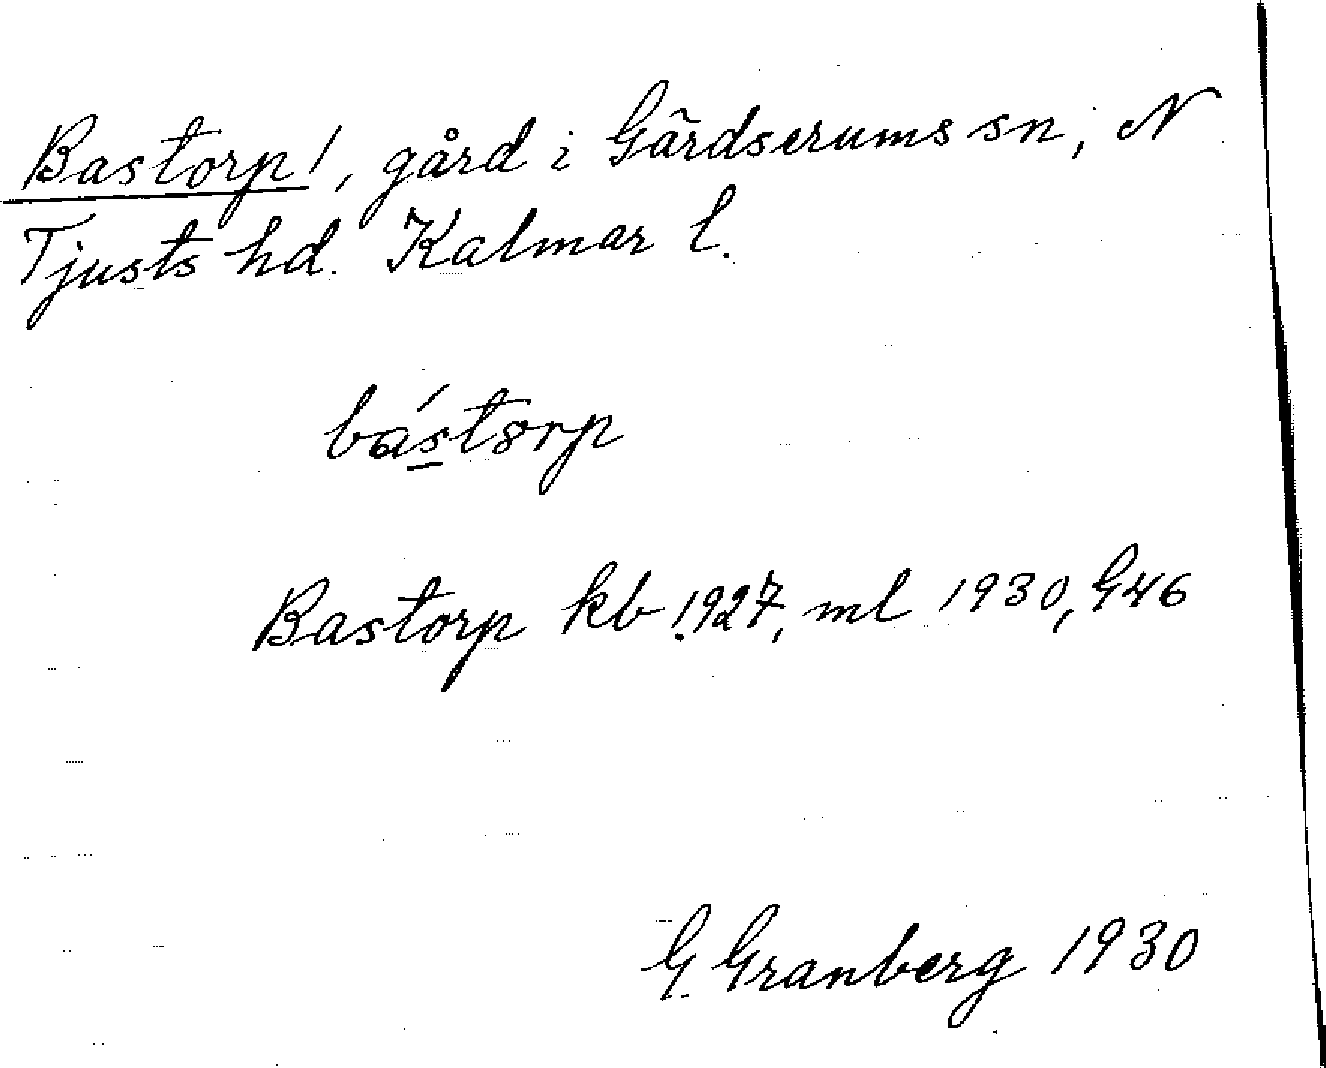 Bastorp!, gård i Gärdserums sn, N
Tjusts hd. Kalmar l.
bástorp
Bastorp kb 1927, ml 1930, G46
G. Granberg 1930